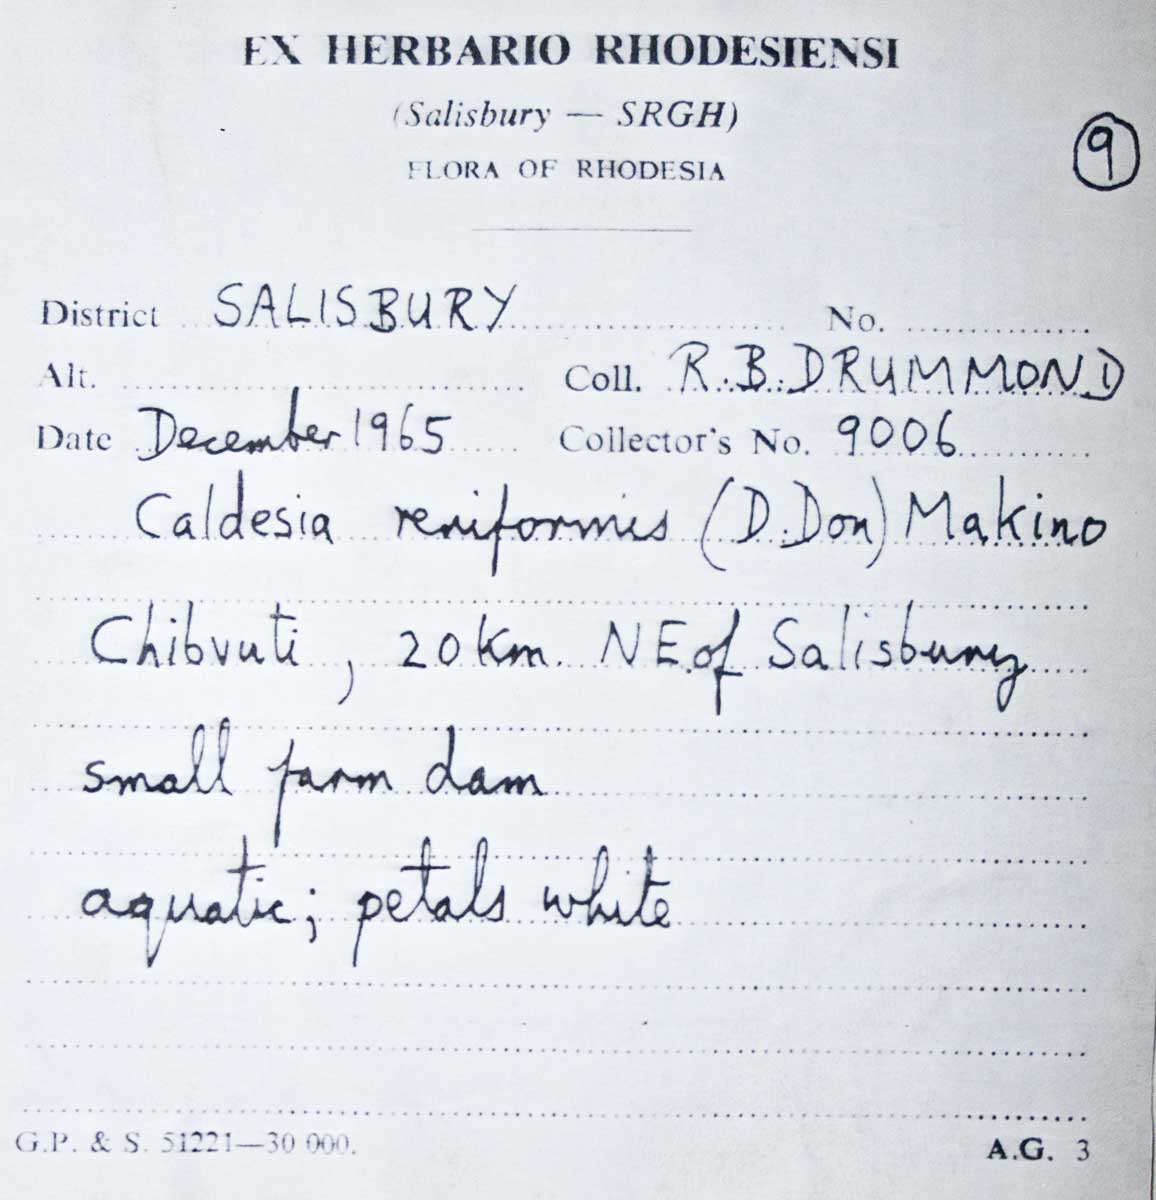 EX HERBARIO RHODESIENSI
(Salisbury — SRGH)
9
FLORA OF RHODESIA
District SALISBURY No.
Alt. Coll. R.B.DRUMMOND
Date December 1965 Collector's No. 9006
Caldesia reniformis (D.Don) Makino
Chibvuti, 20km NE of Salisbury
small farm dam
aquatic; petals white
G.P. & S. 51221—30 000. A.G. 3